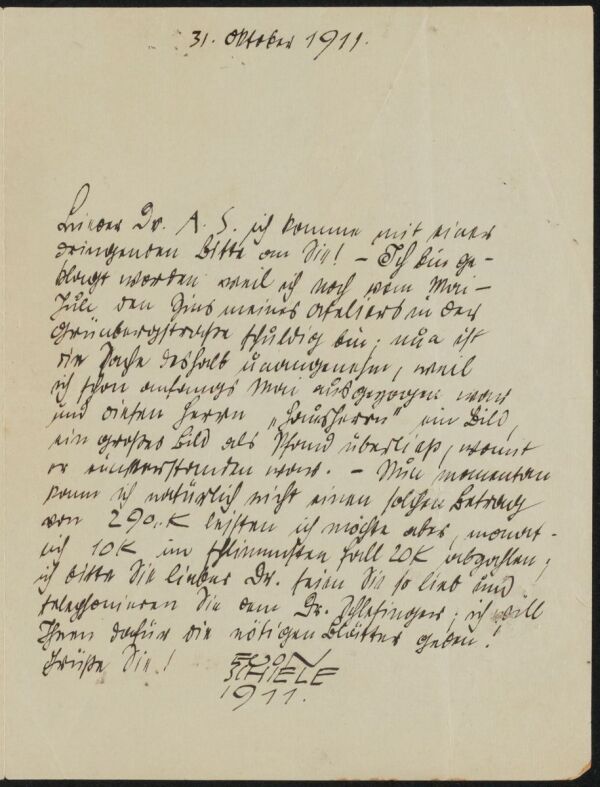 31. Oktober 1911.
Lieber Dr. A. S. ich komme mit einer
dringenden Bitte an Sie! – Ich bin ge-
klagt worden weil ich noch vom Mai –
Juli den Zins meines Ateliers in der
Grünbergstraße schuldig bin; nun ist
die Sache deshalb unangenehm, weil
ich schon anfangs Mai ausgezogen war
und diesem Herrn „Hausherrn" ein Bild,
ein großes Bild als Pfand überließ, womit
er einverstanden war. – Nun momentan
kann ich natürlich nicht einen solchen Betrag
von 290.K leisten ich möchte aber, monat-
lich 10K im schlimmsten Fall 20K abzahlen;
ich bitte Sie lieber Dr. seien Sie so lieb und
telephonieren Sie dem Dr. Schlesinger; ich will
Ihnen dafür die nötigen Blätter geben!
Grüße Sie!
EGON
SCHIELE
1911.